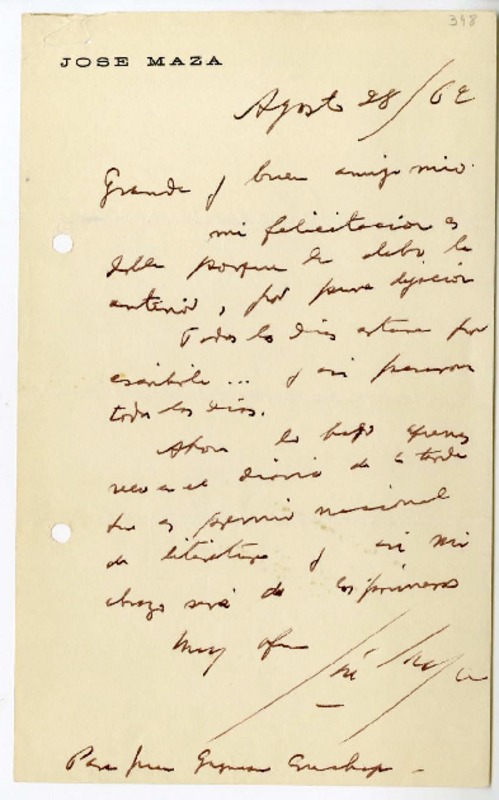 348
JOSE MAZA
Agosto 28/62
Grande y buen amigo mio.
mi felicitación es
doble porque le debo la
anterior, por pura
Todos los dias estaba por
escribirle ... y asi pasaron
todos los dias.
Ahora lo hago apenas
veo en el diario de la tarde
que es premio nacional
de literatura y asi mi
abrazo será de los primeros
Muy afmo
José Maza
Para Juan Guzman Cruchaga -